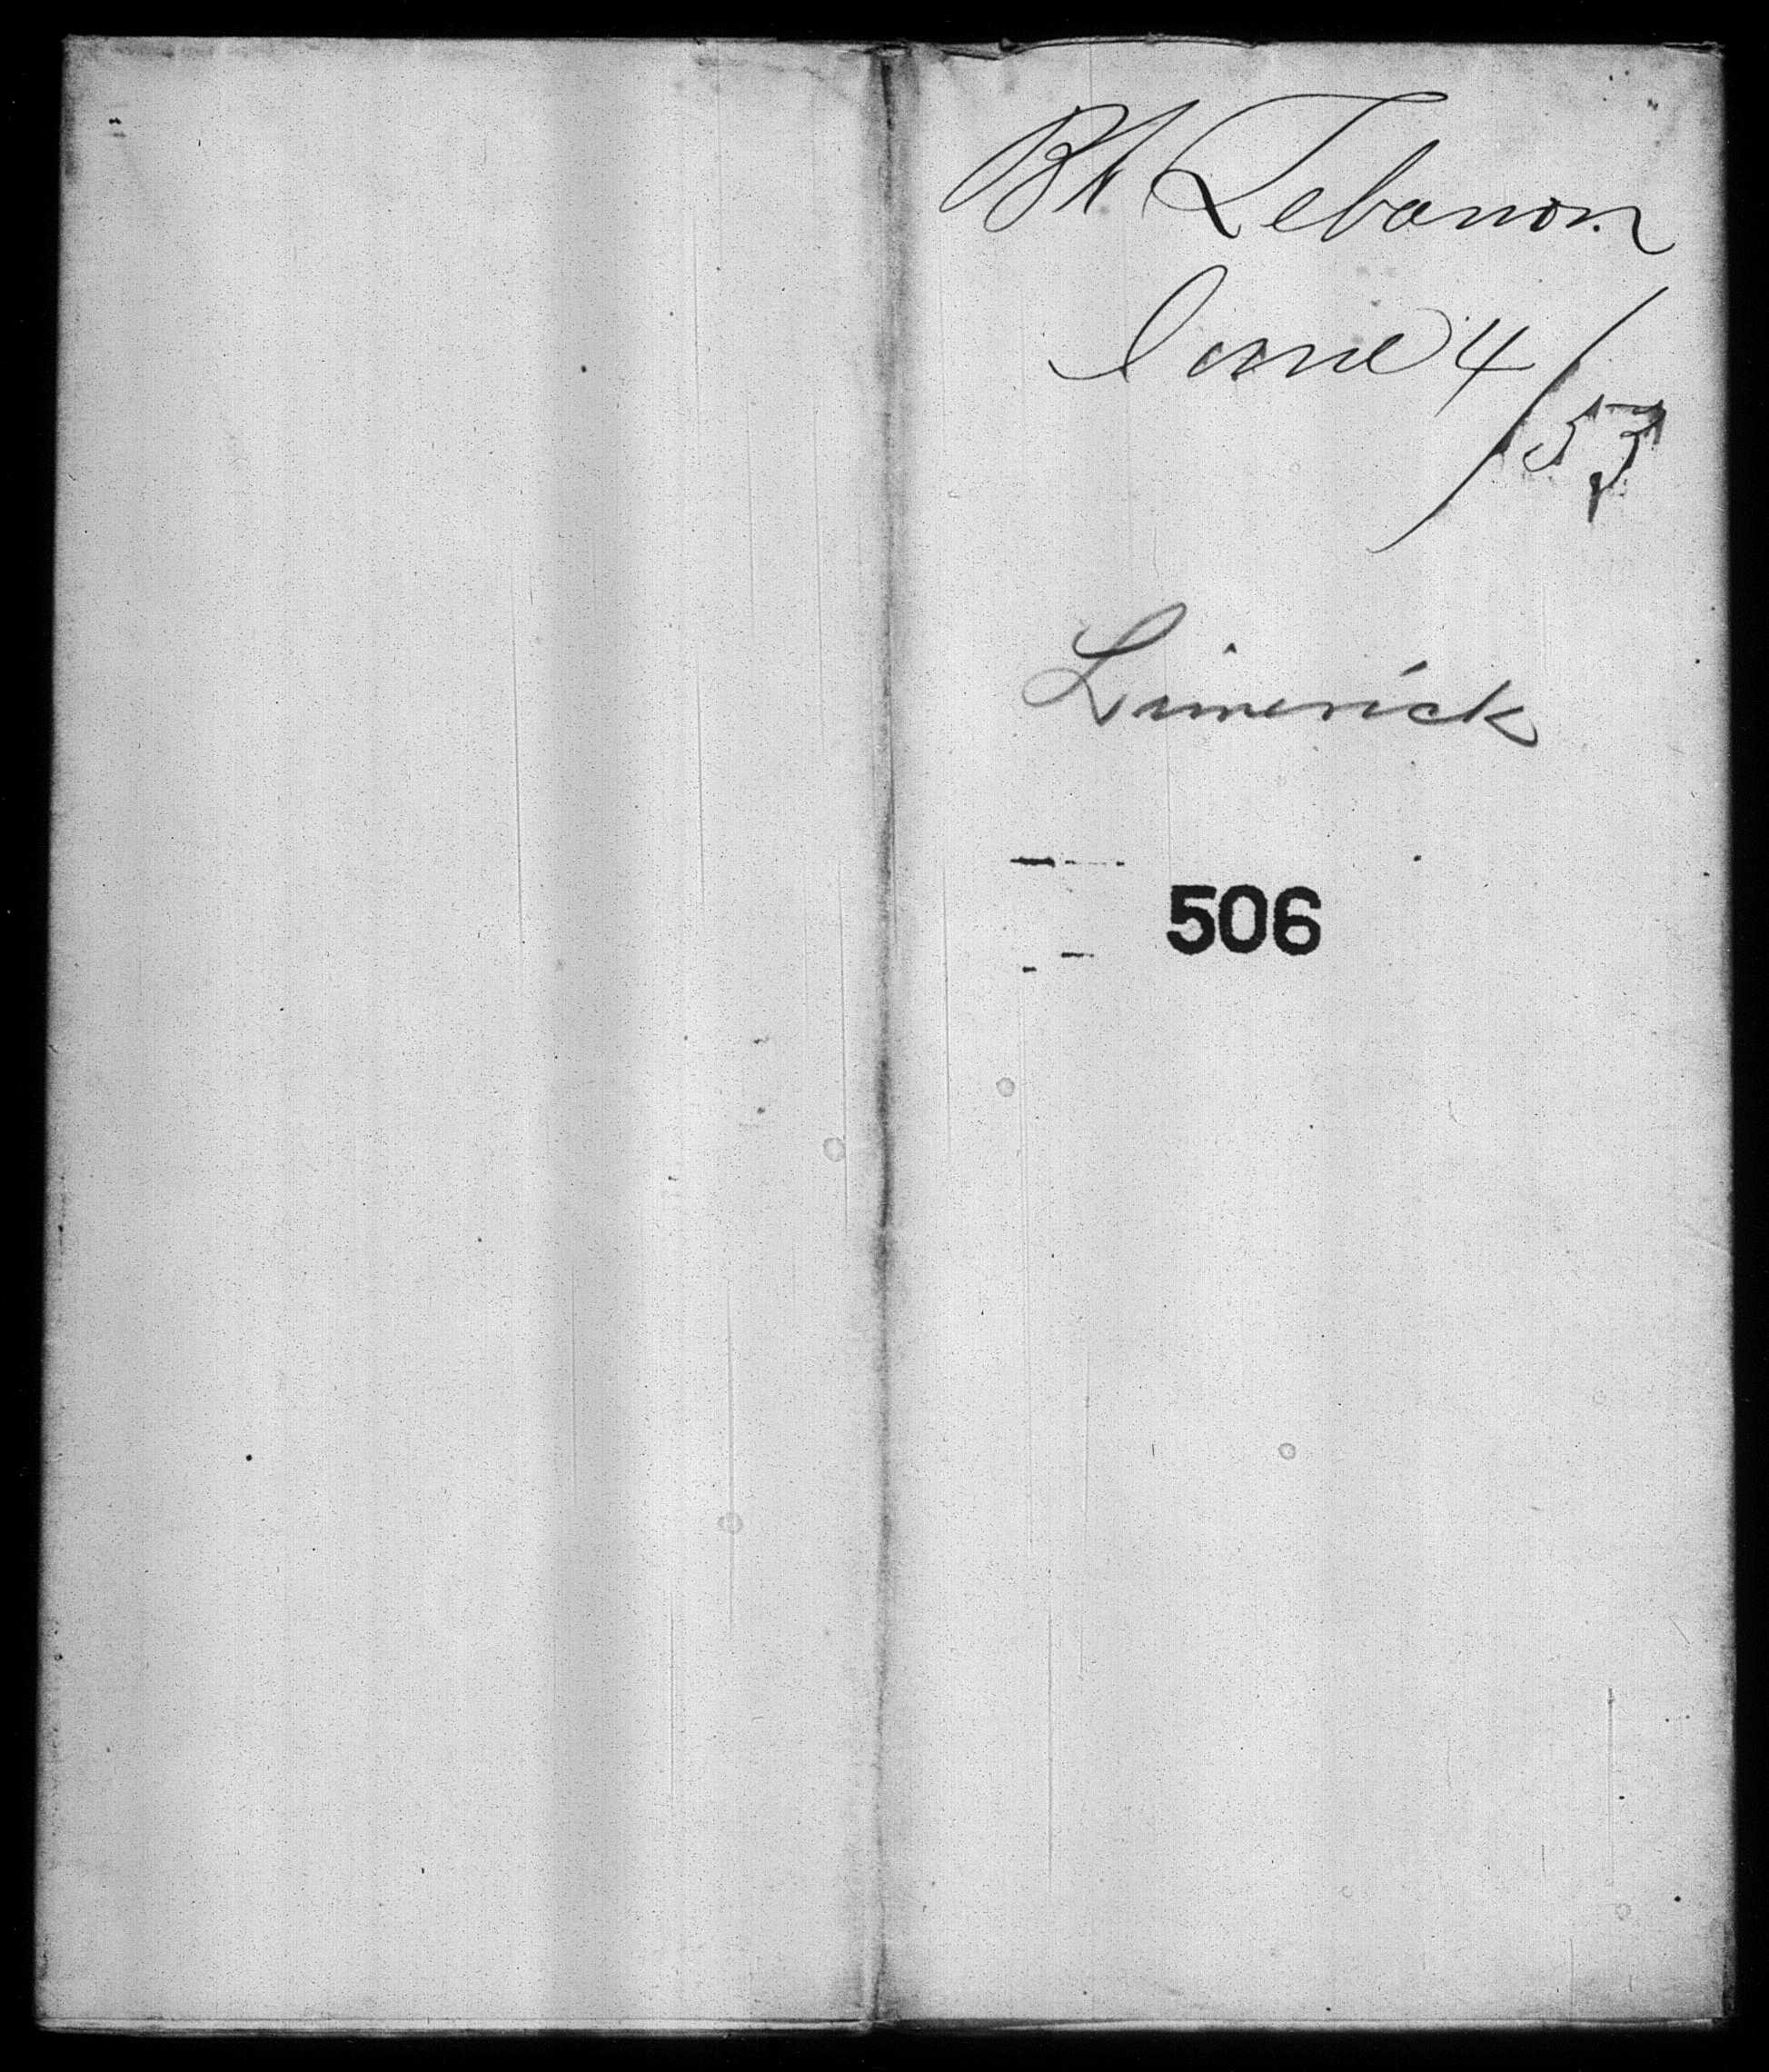 Bk Lebanon
June 4/53
Limerick
506